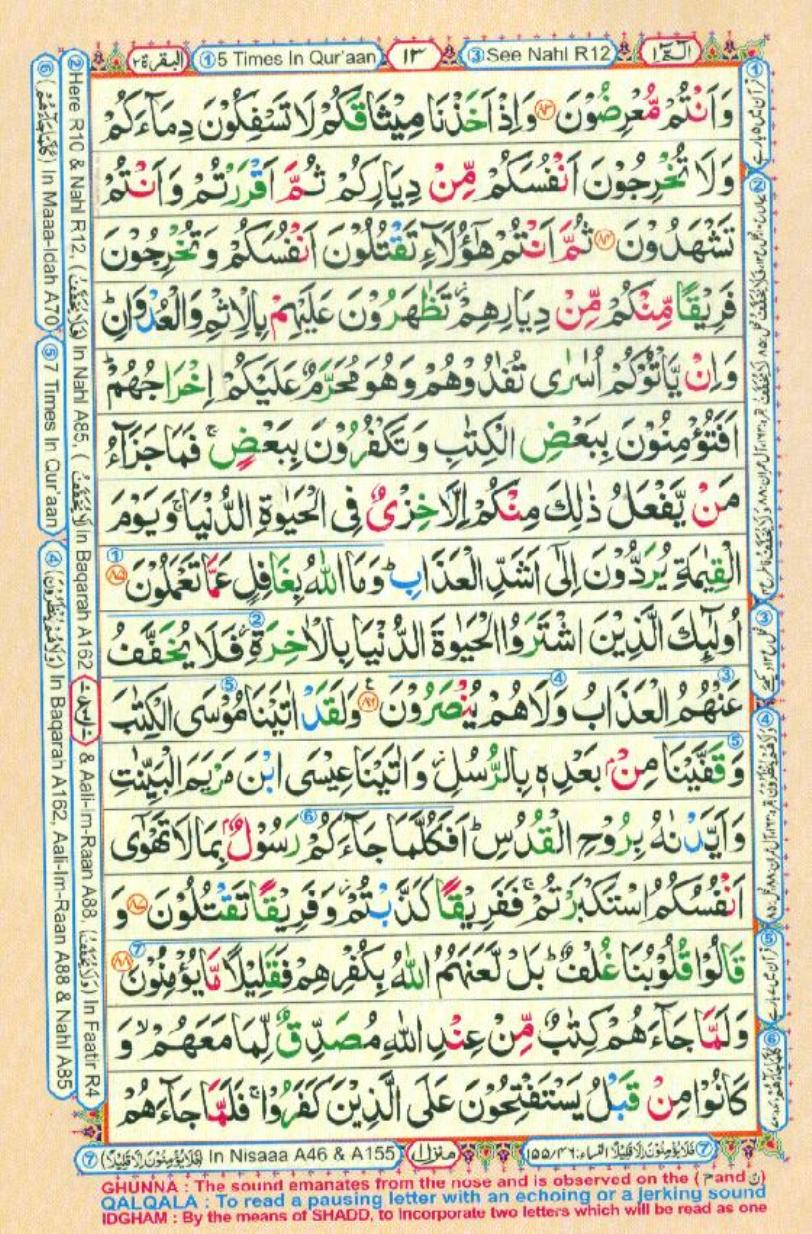 الٓمّٓ ١
③See Nahl R12
١٣
①5 Times In Qur'aan
البقرة ٢
وَاَنْتُمْ مُّعْرِضُوْنَ ﴿٨٣﴾ وَاِذْ اَخَذْنَا مِيْثَاقَكُمْ لَا تَسْفِكُوْنَ دِمَآءَكُمْ
وَلَا تُخْرِجُوْنَ اَنْفُسَكُمْ مِّنْ دِيَارِكُمْ ثُمَّ اَقْرَرْتُمْ وَاَنْتُمْ
تَشْهَدُوْنَ ﴿٨٤﴾ ثُمَّ اَنْتُمْ هٰٓؤُلَآءِ تَقْتُلُوْنَ اَنْفُسَكُمْ وَتُخْرِجُوْنَ
فَرِيْقًا مِّنْكُمْ مِّنْ دِيَارِهِمْ تَظٰهَرُوْنَ عَلَيْهِمْ بِالْاِثْمِ وَالْعُدْوَانِ ؕ
وَاِنْ يَّاْتُوْكُمْ اُسٰرٰى تُفٰدُوْهُمْ وَهُوَ مُحَرَّمٌ عَلَيْكُمْ اِخْرَاجُهُمْ ؕ
اَفَتُؤْمِنُوْنَ بِبَعْضِ الْكِتٰبِ وَتَكْفُرُوْنَ بِبَعْضٍ ۚ فَمَا جَزَآءُ
مَنْ يَّفْعَلُ ذٰلِكَ مِنْكُمْ اِلَّا خِزْىٌ فِى الْحَيٰوةِ الدُّنْيَا ۚ وَيَوْمَ
الْقِيٰمَةِ يُرَدُّوْنَ اِلٰٓى اَشَدِّ الْعَذَابِ ؕ وَمَا اللّٰهُ بِغَافِلٍ عَمَّا تَعْمَلُوْنَ ① ﴿٨٥﴾
اُولٰٓئِكَ الَّذِيْنَ اشْتَرَوُا الْحَيٰوةَ الدُّنْيَا بِالْاٰخِرَةِ ؗ ② فَلَا يُخَفَّفُ
عَنْهُمُ الْعَذَابُ ③ وَلَا هُمْ يُنْصَرُوْنَ ④ ﴿٨٦﴾ وَلَقَدْ اٰتَيْنَا مُوْسَى الْكِتٰبَ ⑤
وَقَفَّيْنَا ⑤ مِنْۢ بَعْدِهٖ بِالرُّسُلِ ؗ وَاٰتَيْنَا عِيْسَى ابْنَ مَرْيَمَ الْبَيِّنٰتِ
وَاَيَّدْنٰهُ بِرُوْحِ الْقُدُسِ ؕ اَفَكُلَّمَا جَآءَكُمْ ⑥ رَسُوْلٌۢ بِمَا لَا تَهْوٰٓى
اَنْفُسُكُمُ اسْتَكْبَرْتُمْ ۚ فَفَرِيْقًا كَذَّبْتُمْ ؗ وَفَرِيْقًا تَقْتُلُوْنَ ﴿٨٧﴾ وَ
قَالُوْا قُلُوْبُنَا غُلْفٌ ؕ بَلْ لَّعَنَهُمُ اللّٰهُ بِكُفْرِهِمْ فَقَلِيْلًا مَّا يُؤْمِنُوْنَ ⑦ ﴿٨٨﴾
وَلَمَّا جَآءَهُمْ كِتٰبٌ مِّنْ عِنْدِ اللّٰهِ مُصَدِّقٌ لِّمَا مَعَهُمْ ۙ وَ
كَانُوْا مِنْ قَبْلُ يَسْتَفْتِحُوْنَ عَلَى الَّذِيْنَ كَفَرُوْا ۖۚ فَلَمَّا جَآءَهُمْ
②Here R10 & Nahl R12, (فَلَا يُخَفَّفُ) In Nahl A85, (لَا يُخَفَّفُ) In Baqarah A162 & Aali-Im-Raan A88, (وَلَا يُخَفَّفُ) In Faatir R4
⑥(كُلَّمَا جَآءَهُمْ) In Maaa-Idah A70
⑤7 Times In Qur'aan
④(وَلَا هُمْ يُنْظَرُوْنَ) In Baqarah A162, Aali-Im-Raan A88 & Nahl A85
⑦ فَلَا يُؤْمِنُوْنَ اِلَّا قَلِيْلًا النساء: ١٥٥/٤٦
منزل ١
⑦(فَلَا يُؤْمِنُوْنَ اِلَّا قَلِيْلًا) In Nisaaa A46 & A155
GHUNNA : The sound emanates from the nose and is observed on the ( م and ن )
QALQALA : To read a pausing letter with an echoing or a jerking sound
IDGHAM : By the means of SHADD, to incorporate two letters which will be read as one